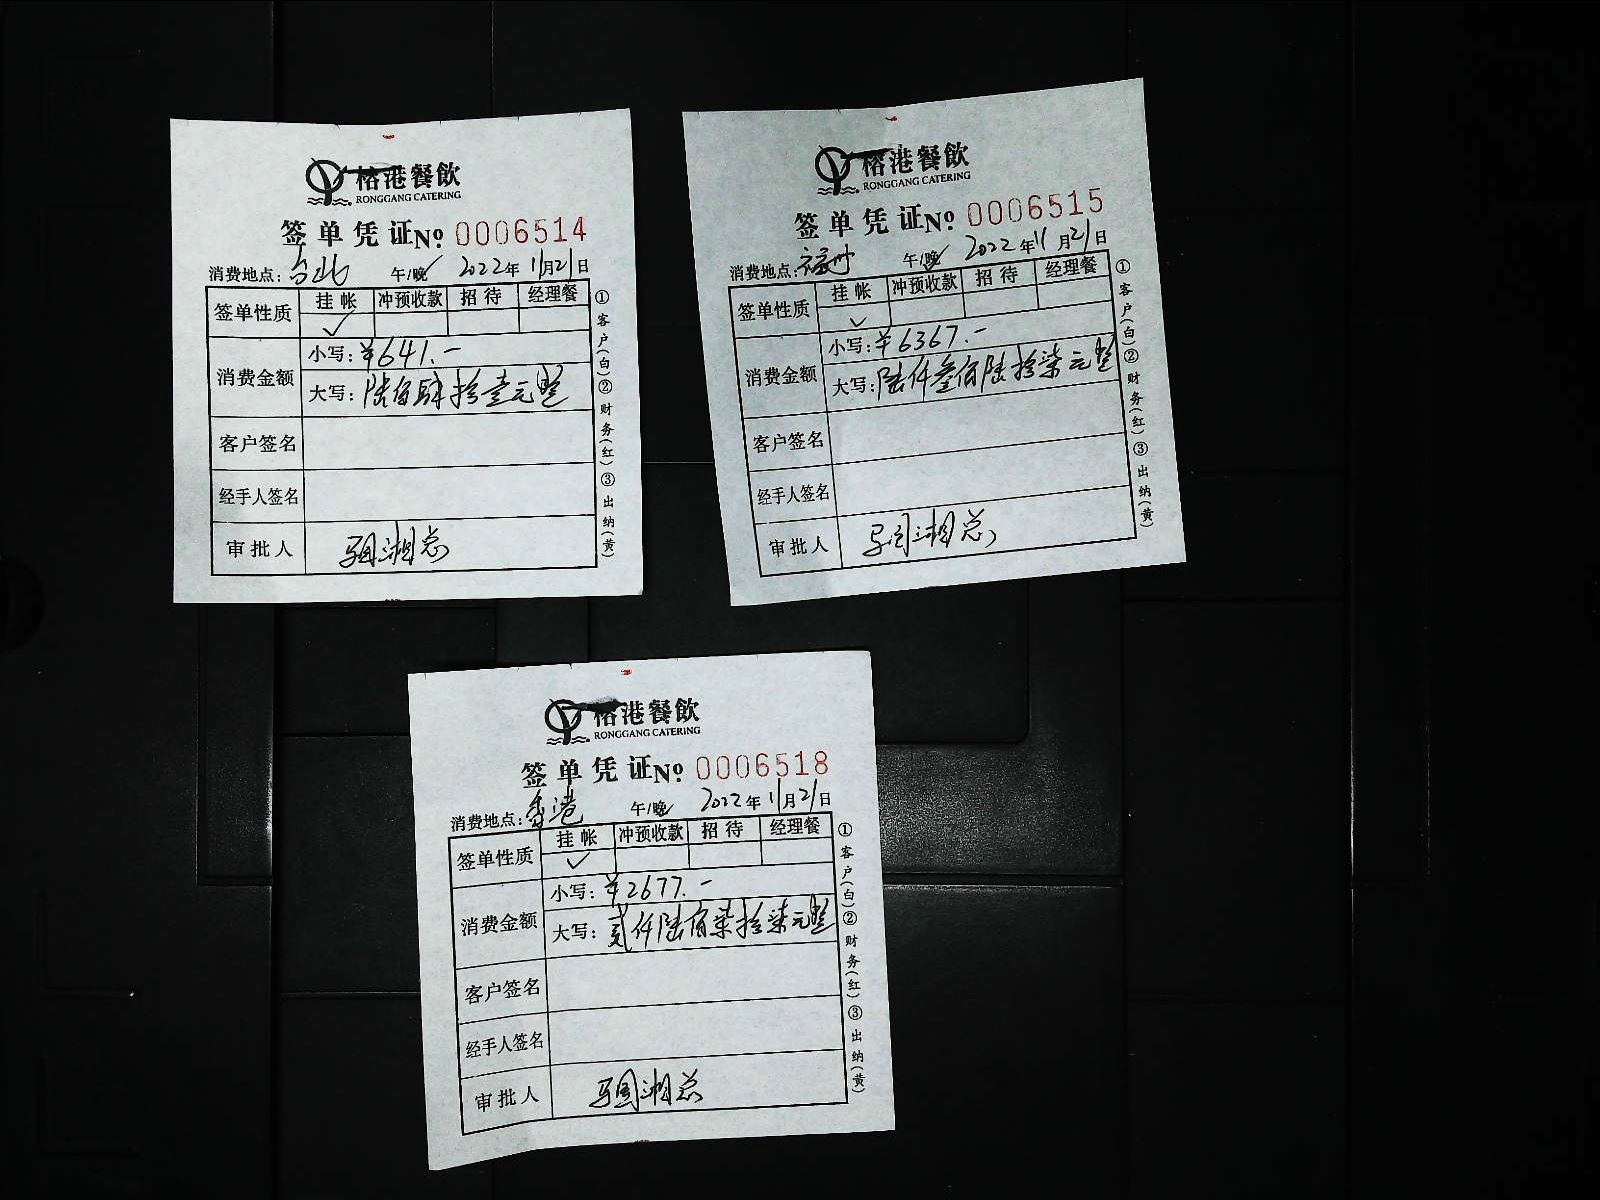 榕港餐飲
RONGGANG CATERING
签单凭证No 0006514
消费地点：台北 午/晚✓ 2022年11月21日
签单性质 挂帐 冲预收款 招待 经理餐
✓
消费金额 小写：¥641.-
大写：陆佰肆拾壹元整
客户签名
经手人签名
审批人 湘总
①客户(白)②财务(红)③出纳(黄)
榕港餐飲
RONGGANG CATERING
签单凭证No 0006515
消费地点：福州 午/晚✓ 2022年11月21日
签单性质 挂帐 冲预收款 招待 经理餐
✓
消费金额 小写：¥6367.-
大写：陆仟叁佰陆拾柒元整
客户签名
经手人签名
审批人 湘总
①客户(白)②财务(红)③出纳(黄)
榕港餐飲
RONGGANG CATERING
签单凭证No 0006518
消费地点：香港 午/晚✓ 2022年11月21日
签单性质 挂帐 冲预收款 招待 经理餐
✓
消费金额 小写：¥2677.-
大写：贰仟陆佰柒拾柒元整
客户签名
经手人签名
审批人 湘总
①客户(白)②财务(红)③出纳(黄)